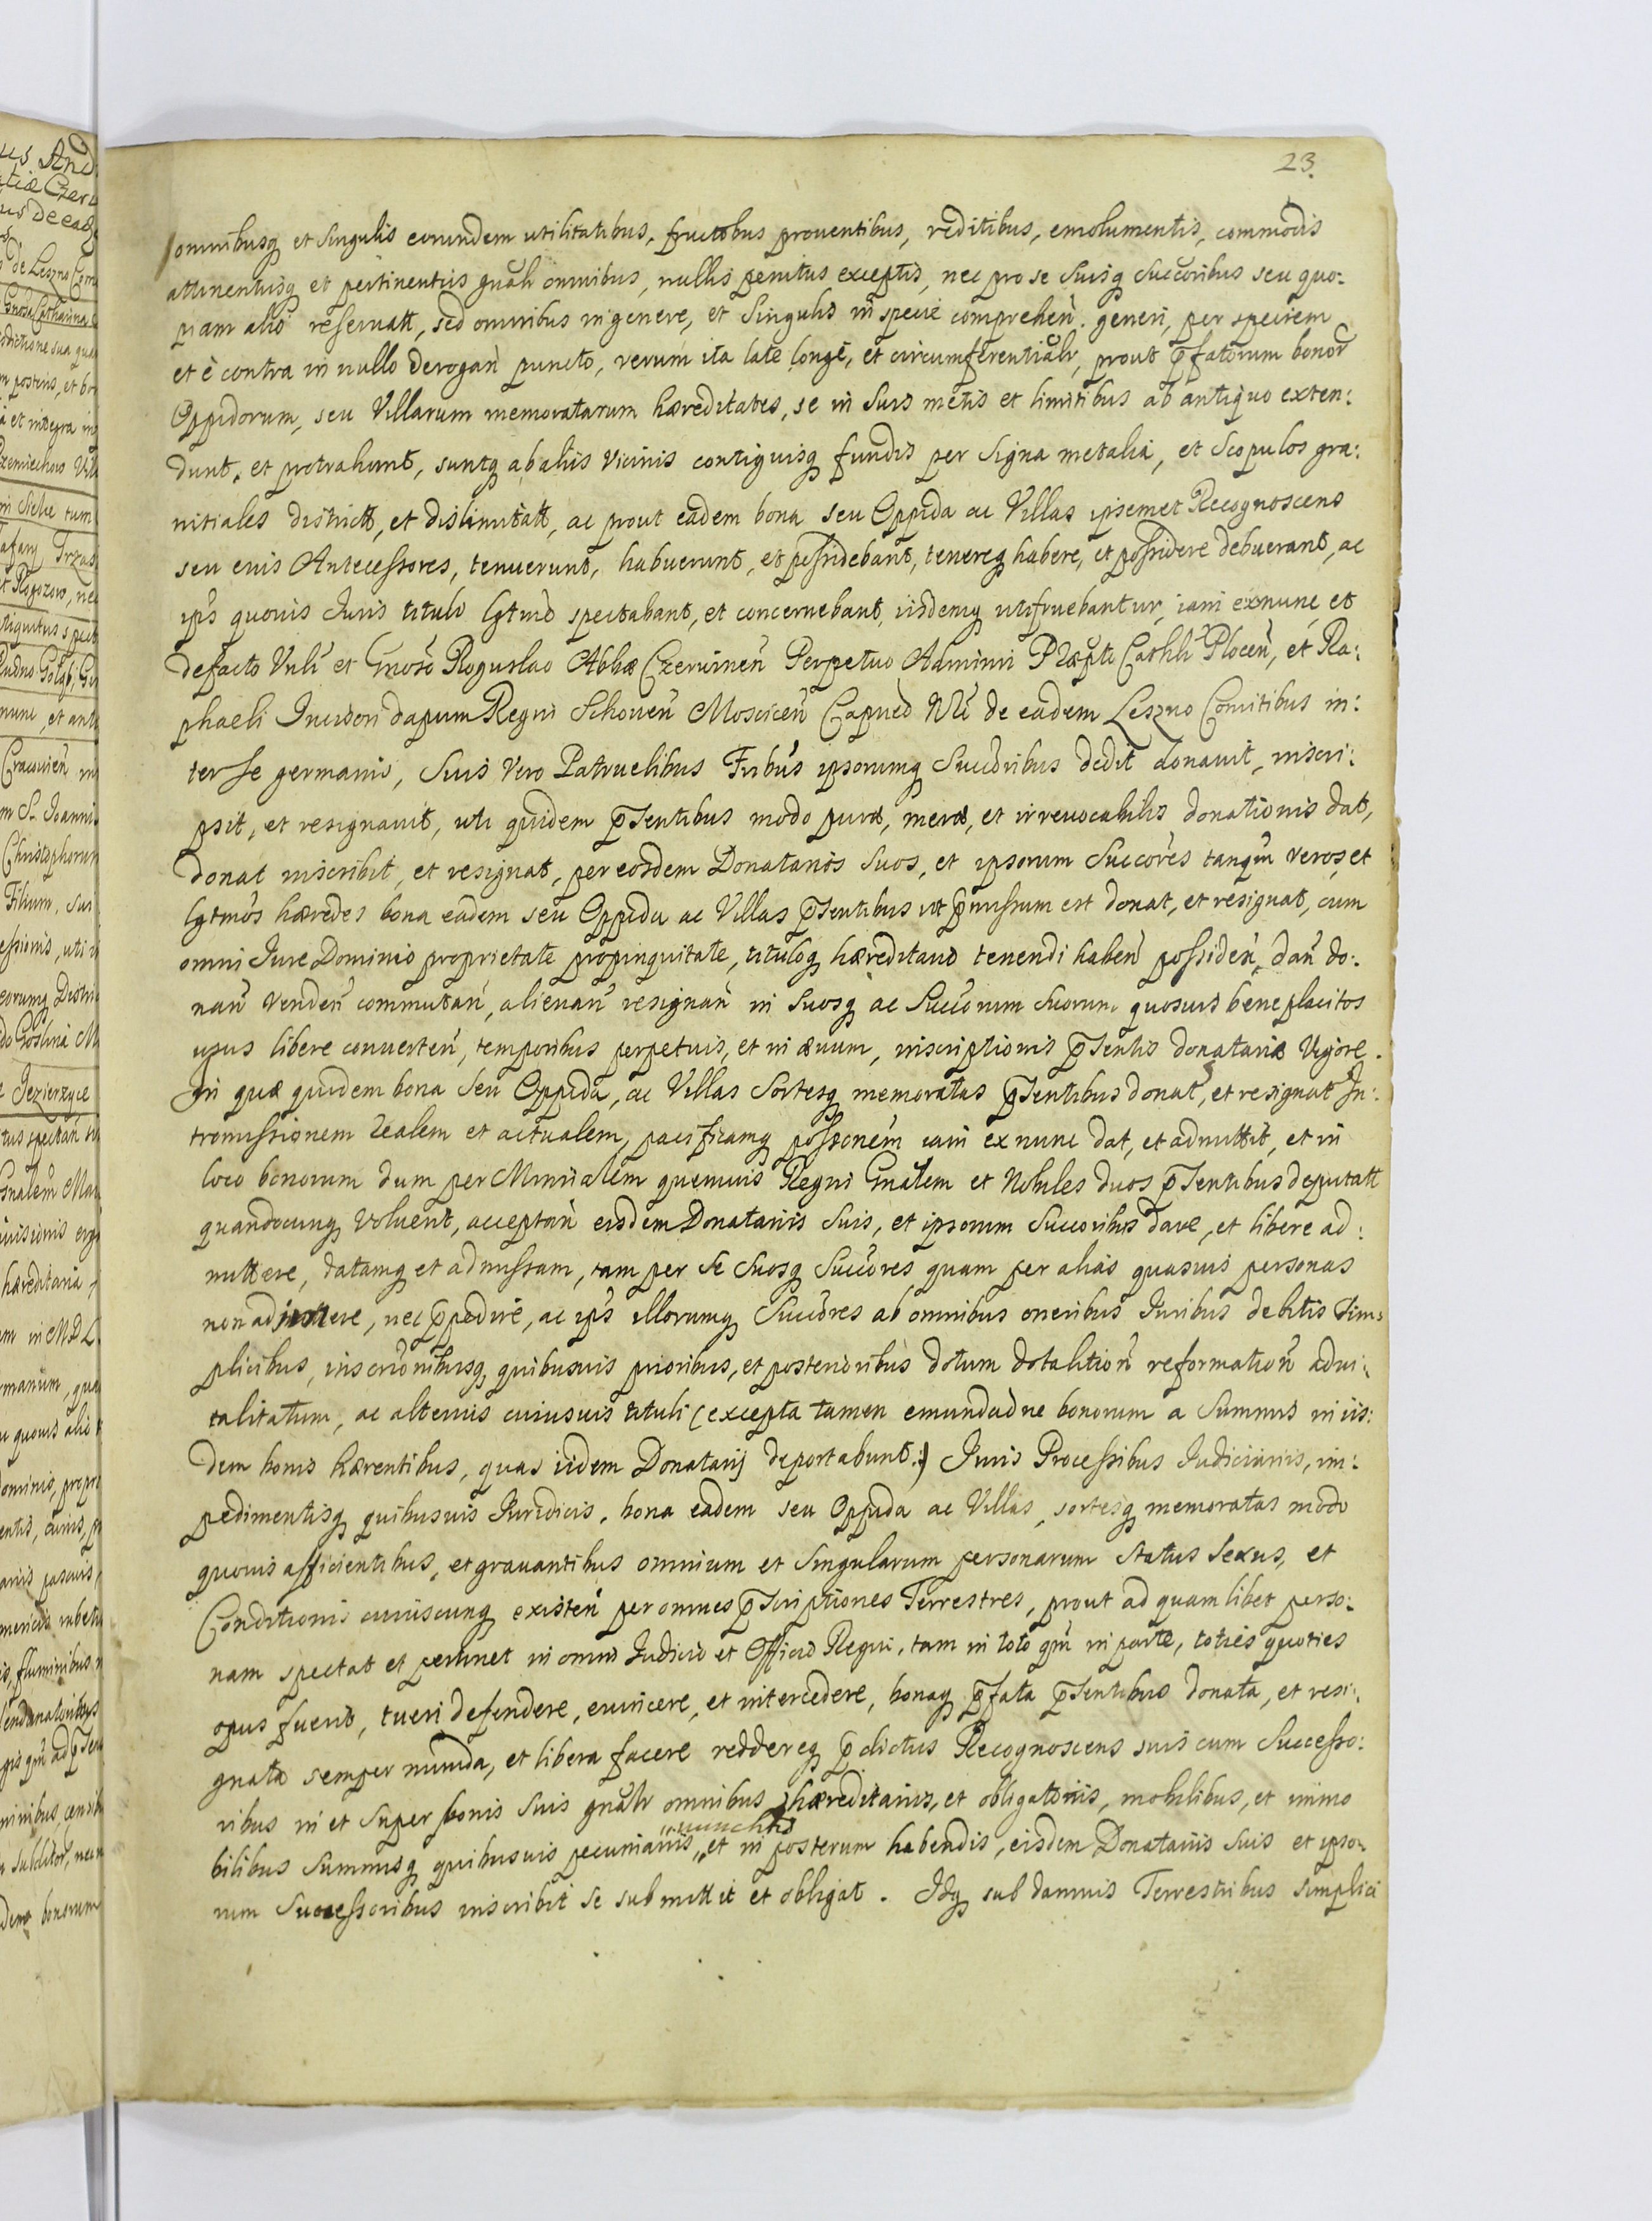 23.
omnibusq et singulis eorundem utilitatibus, fructobus prouentibus, reditibus, emolumentis, commodis
attinentiisq et pertinentiis gnalr omnibus, nullis penitus exceptis, nec pro se Suisq Succoribus seu quo:
piam alio reseruatt, sed omnibus in genere, et Singulis in specie comprehen. generi, per speciem
et è contra in nullo derogan puncto, verum ita late longe, et circumferentialr, prout pfatorum bonor
Oppidorum, seu Villarum memoratarum hæreditates, se in Suis metis et limitibus ab antiquo exten:
dunt, et protrahunt, suntq ab aliis Vicinis contiguisq fundis per Signa metalia, et Scopulos gra:
nitiales districtt, et dislimitatt, ac prout eadem bona seu Oppida ac Villas ipsemet Recognoscens
seu eius Antecessores, tenuerunt, habuerunt, et possidebant, tenereq habere, et possidere debuerant, ac
ips quouis Juris titulo lgtmo spectabant, et concernebant, iisdemq utifruebantur, iam exnunc, et
defacto Vnli et Gnoso Boguslao Abbæ Czerwinen Perpetuo Adminri Præpto Cathli Plocen, et Ra:
phaeli Incisori dapum Regni Schouen Moscicen Capneo de eadem Leszno Comitibus in:
ter se germanis, Suis Vero Patruelibus Fribus ipsorumq Succoribus dedit donauit, inscri:
psit, et resignauit, uti quidem pSentibus modo puræ, meræ, et irreuocabilis donationis dat,
donat inscribit, et resignat, per eosdem Donatarios Suos, et ipsorum Succores tanqm veros, et
lgtmos hæredes bona eadem seu Oppida ac Villas pSentibus ut pmissum est donat, et resignat, cum
omni Jure Dominio proprietate propinquitate, tituloq hæreditario tenendi haben possiden, dan do:
nan Venden commutan, alienan resignan in Suosq ac Succorum Suorum quosuis beneplacitos
usus libere conuerten, temporibus perpetuis, et in æuum, inscriptionis pSentis donatariæ Vigore.
In quæ quidem bona Seu Oppida, ac Villas Sortesq memoratas pSentibus donat, et resignat In:
tromissionem realem et actualem, pacificamq possonem iam ex nunc dat, et admittit, et in
loco bonorum dum per Mnrialem quemuis Regni Gnalem et Nobiles duos pSentibus deputatt
quandocunq Voluerit, acceptan eisdem Donatariis Suis, et ipsorum Succoribus dare, et libere ad:
mittere, datamq et admissam, tam per Se Suosq Succores quam per alias quasuis personas
non adimere, nec ppedire, ac ips illorumq Succores ab omnibus oneribus Juribus debitis Sim:
plicibus, inscrionibusq quibusuis prioribus, et posterioribus dotum dotalition reformation adui:
talitatum, ac alterius cuiusuis tituli (excepta tamen emundaone bonorum a Summis in iis:
dem bonis hærentibus, quas iidem Donatarij deportabunt:) Juris Processibus Judiciariis, im:
pedimentisq quibusuis Juridicis, bona eadem seu Oppida ac Villas, sortesq memoratas modo
quouis afficientibus, et grauantibus omnium et Singularum personarum status Sexus, et
Conditionis cuiuscunq existen per omnes pScriptiones Terrestres, prout ad quamlibet perso:
nam spectat et pertinet in omni Judicio et Officio Regni, tam in toto qm in parte, toties quoties
opus fuerit, tueri defendere, euincere, et intercedere, bonaq pfata pSentibus donata, et resi:
gnata semper munda, et libera facere reddereq pdictus Recognoscens suis cum Successo:
ribus in et Super bonis Suis gnalr omnibus hæreditariis, et obligatoriis, mobilibus, et immo
bilibus Summisq quibusuis pecuniariis, et in posterum habendis, eisdem Donatariis Suis et ipso:
rum Successoribus inscribit Se submittit et obligat. Idq sub damnis Terrestribus Simplici